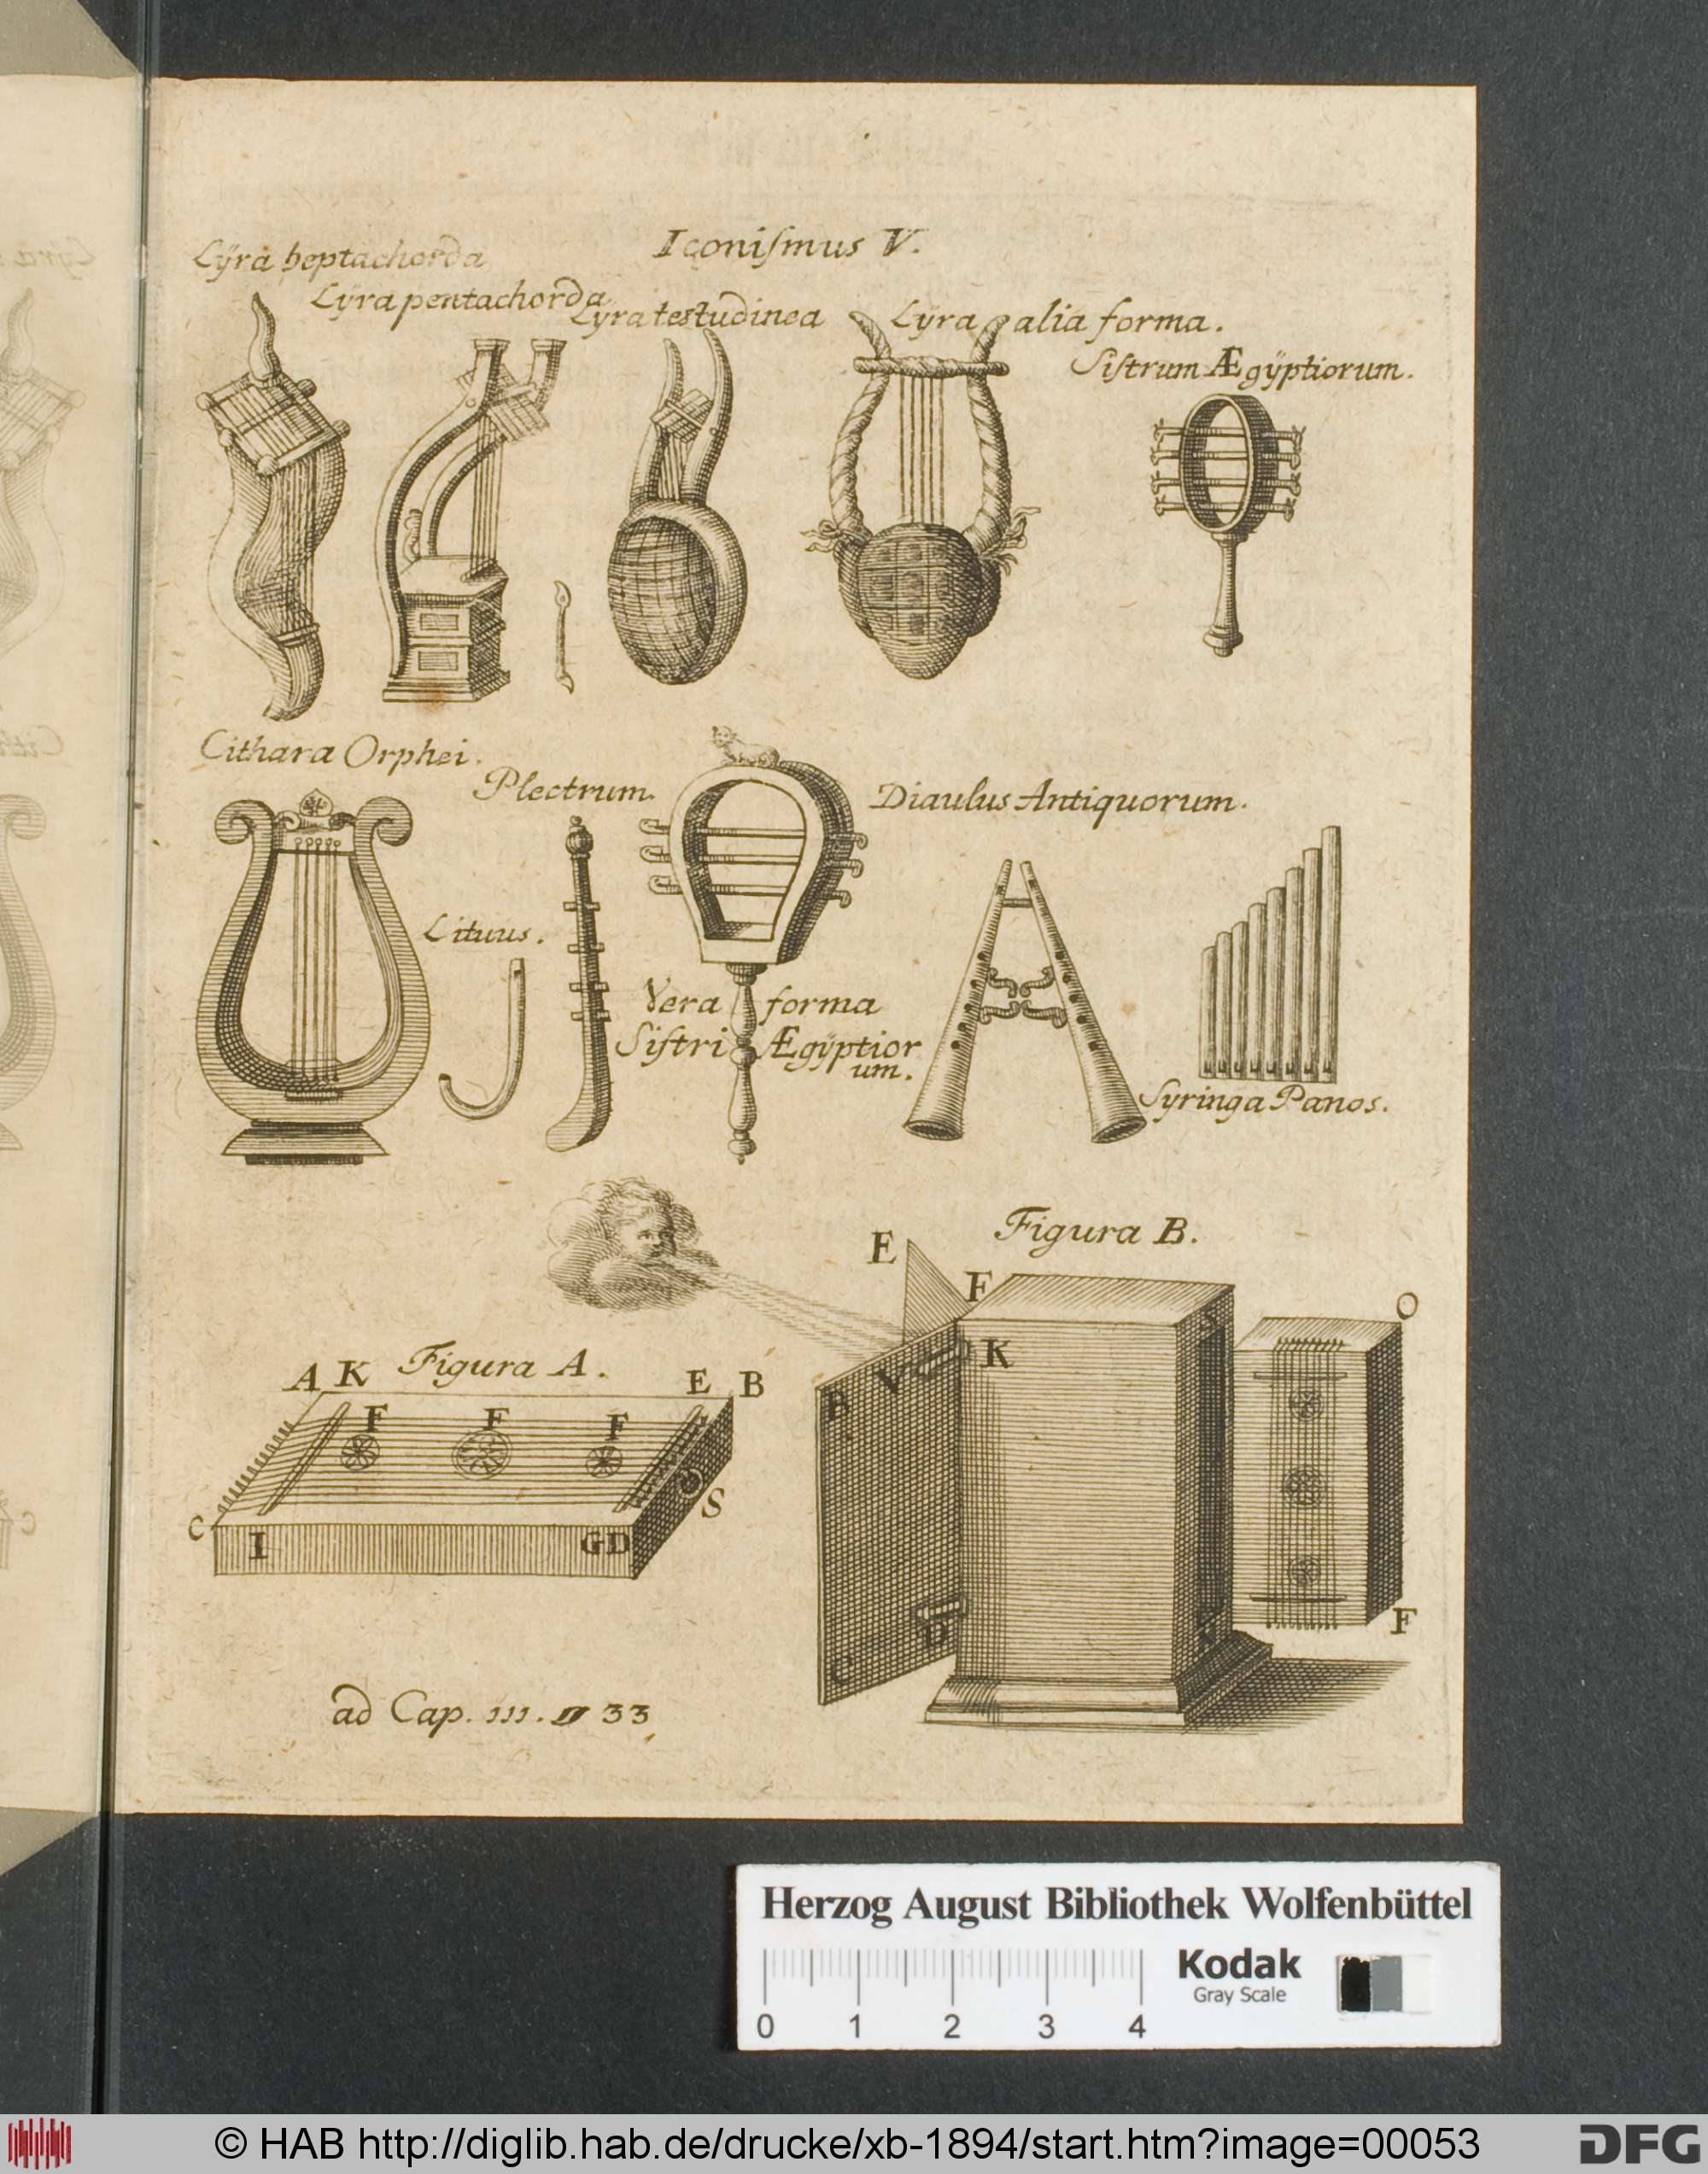 Iconiſmus V.
Lÿra heptachorda
Lÿra pentachorda
Lyra testudinea
Lÿra alia forma.
Siſtrum Ægÿptiorum.
Cithara Orphei.
Plectrum.
Diaulus Antiquorum.
Lituus.
Vera forma
Siſtri Ægÿptior
um.
Syringa Panos.
Figura B.
E
F
K
V
B
S
O
D
C
F
Figura A.
A K E B
F F F
C S
I G D
ad Cap. III. 33
Herzog August Bibliothek Wolfenbüttel
Kodak
Gray Scale
0 1 2 3 4
© HAB http://diglib.hab.de/drucke/xb-1894/start.htm?image=00053
DFG